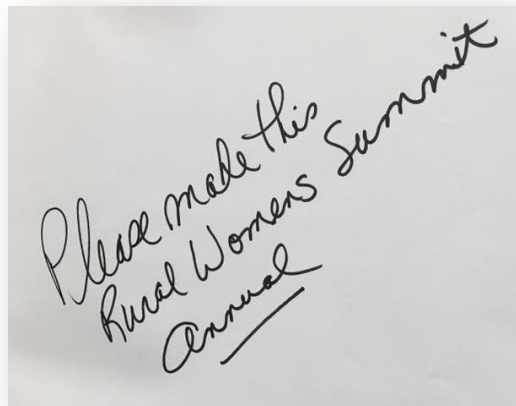 Please made this
Rural Womens Summit
annual